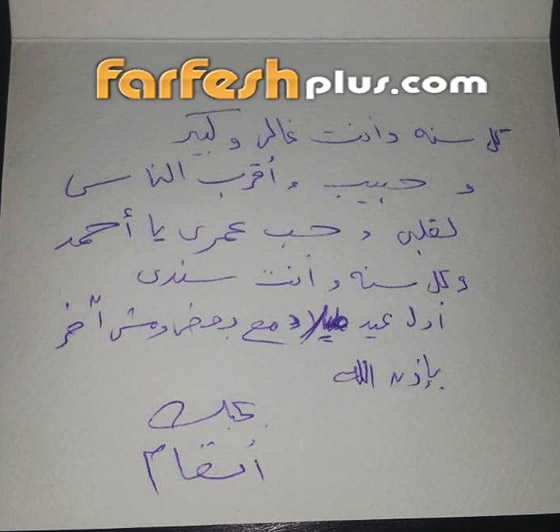 farfeshplus.com
كل سنه وانت غالى وكبير
و حبيب و أقرب الناس
لقلبى و حب عمرى يا أحمد
وكل سنه و أنت سندى
أول عيد ميلاد مع بعض ومش آخر
بإذن الله
بحبك
أنغام